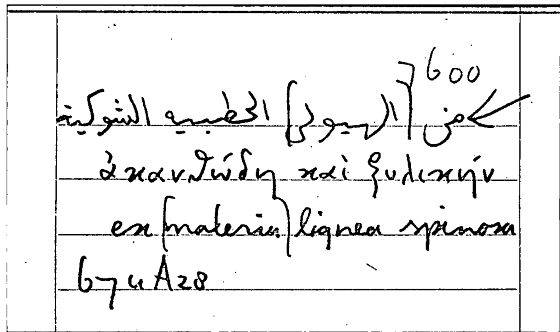 600
من [الهيولى] الحطبية الشوكية
ἀκανθώδη καὶ ξυλικήν
ex [materia] lignea spinosa